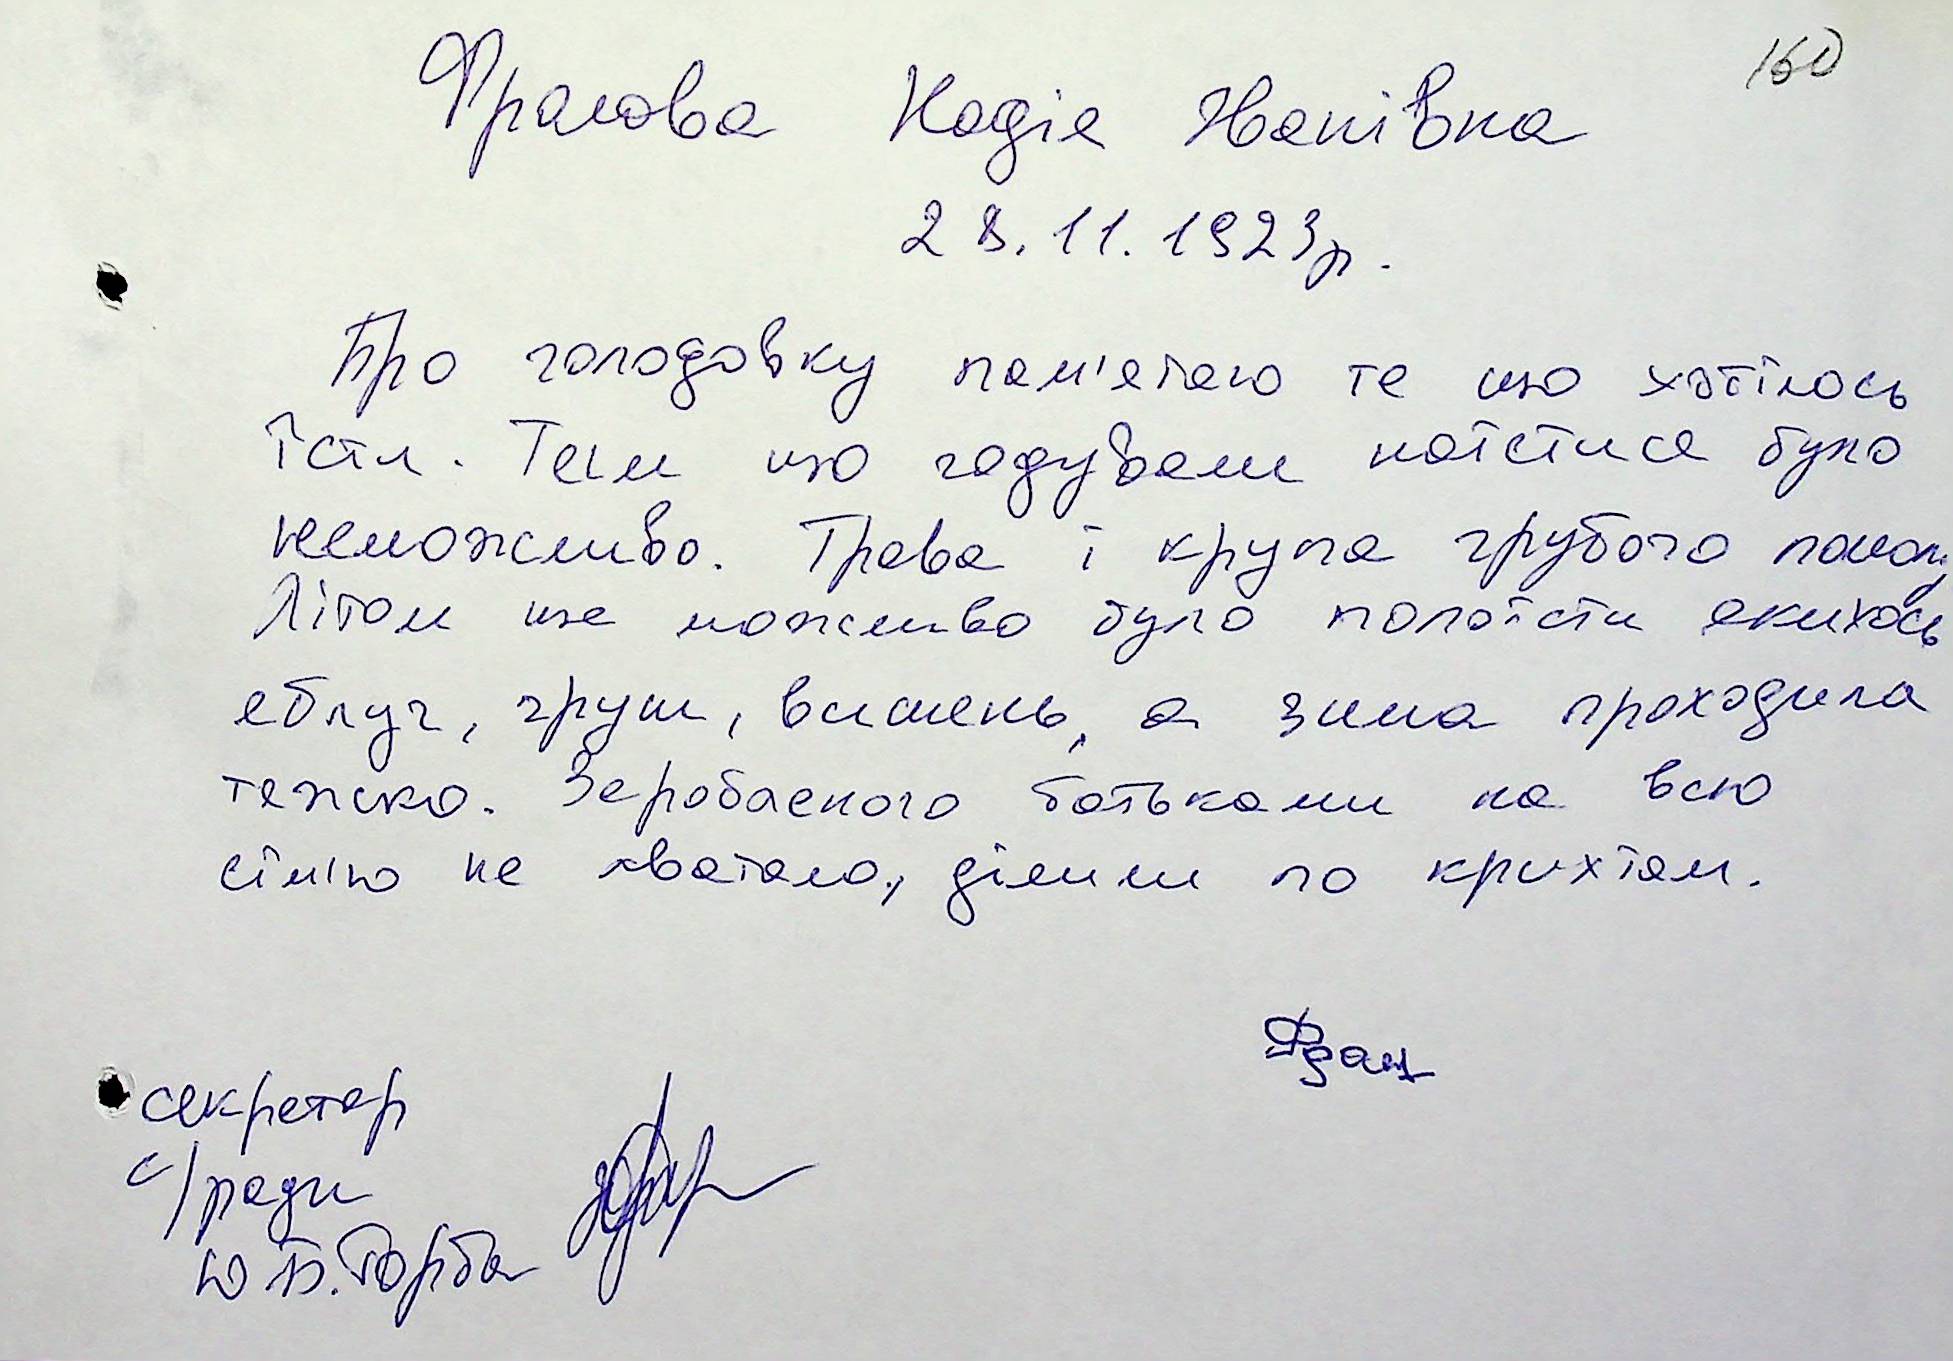 160
Фралова Надія Іванівна
28.11.1923р.
Про голодовку пам'ятаю те що хотілось
їсти. Тим що годували наїстися було
неможливо. Трава і крупа грубого помолу
Літом ще можливо було попоїсти якихось
яблук, груш, вишень, а зима проходила
тяжко. Заробленого батьками на всю
сім'ю не хватало, ділили по крихтам.
секретар
с/ради
Ю.В. Горба